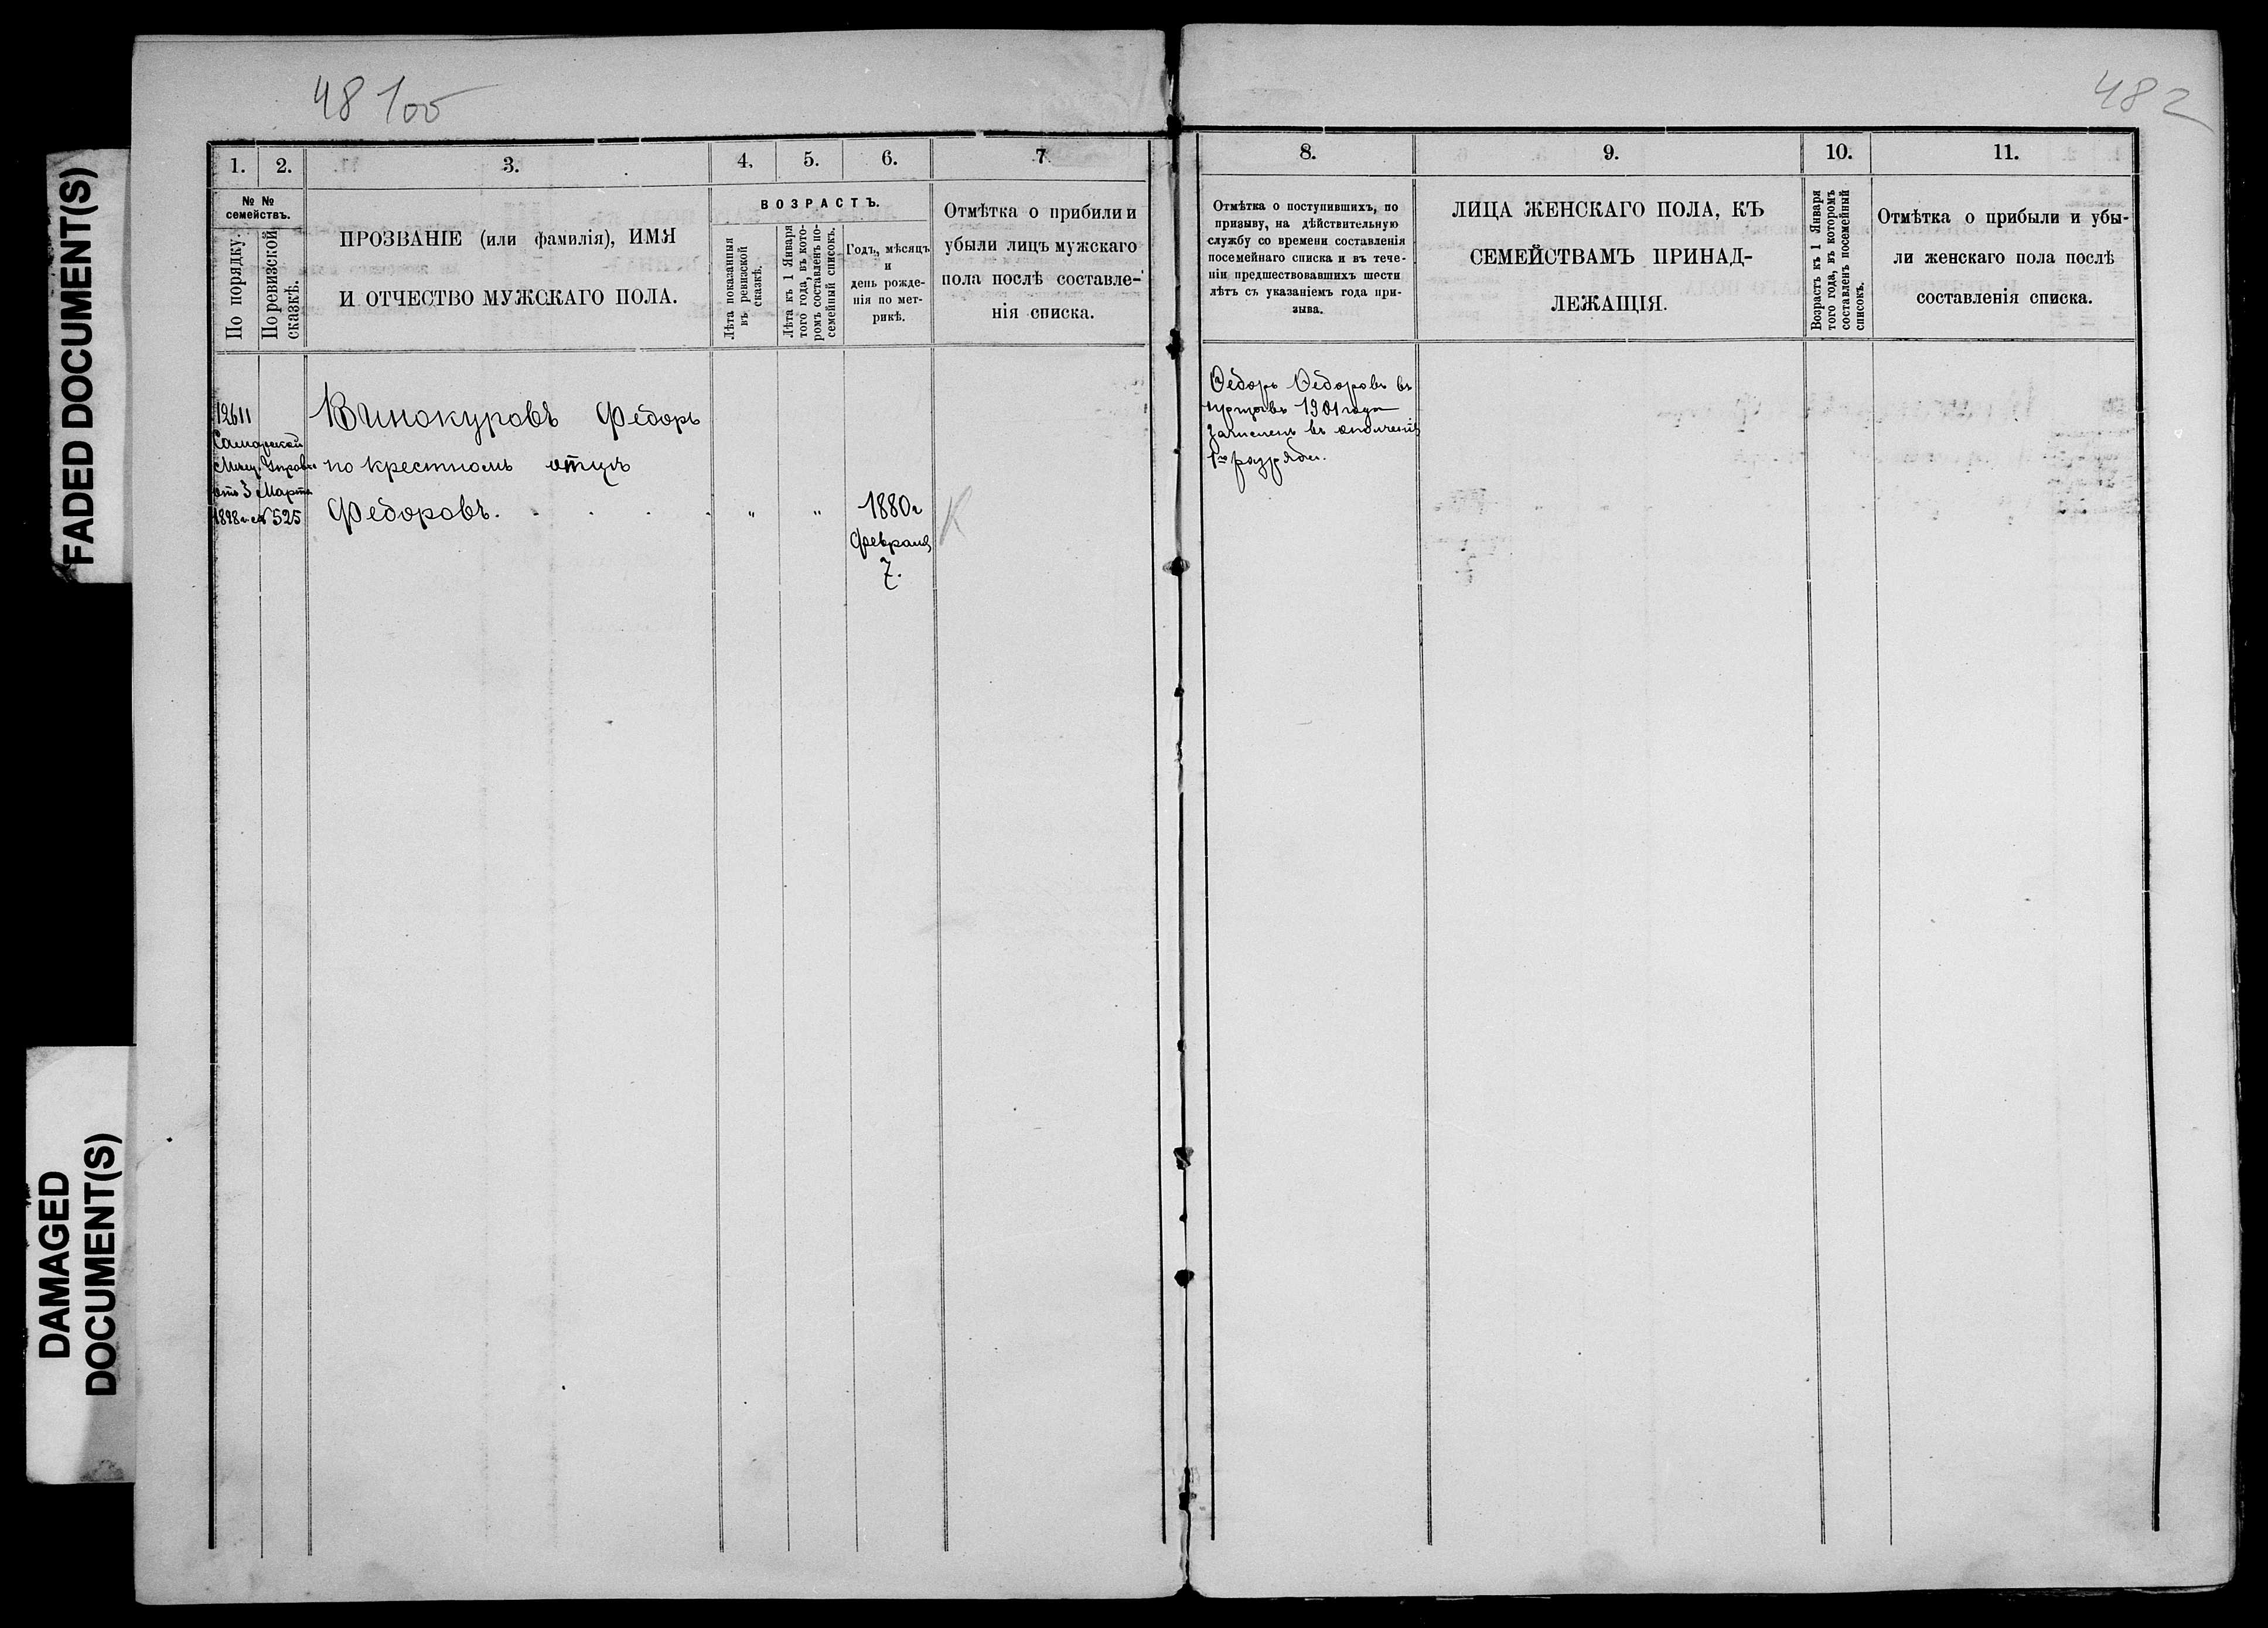 48 100
482
FADED DOCUMENT(S)
DAMAGED
DOCUMENT(S)
1.
2.
3.
4.
5.
6.
7.
№ №
семействъ.
По порядку.
По ревизской
сказкѣ.
ПРОЗВАНІЕ (или фамилія), ИМЯ
И ОТЧЕСТВО МУЖСКАГО ПОЛА.
ВОЗРАСТЪ.
Лѣта показанныя
въ ревизской
сказкѣ.
Лѣта къ 1 Января
того года, въ кото-
ромъ составленъ по-
семейный списокъ.
Годъ, мѣсяцъ
и
день рожде-
нія по мет-
рикѣ.
Отмѣтка о прибили и
убыли лицъ мужскаго
пола послѣ составле-
нія списка.
12611
Самарской
Мѣщ. Управы
отъ 3 Марта
1898 г. № 525
Винокуровъ Федоръ
по крестномъ отцѣ
Федоровъ.
" "
1880 г
Февраля
7.
К
8.
9.
10.
11.
Отмѣтка о поступившихъ, по
призыву, на дѣйствительную
службу со времени составленія
посемейнаго списка и въ тече-
ніи предшествовавшихъ шести
лѣтъ съ указаніемъ года при-
зыва.
ЛИЦА ЖЕНСКАГО ПОЛА, КЪ
СЕМЕЙСТВАМЪ ПРИНАД-
ЛЕЖАЩІЯ.
Возрастъ къ 1 Января
того года, въ которомъ
составленъ посемейный
списокъ.
Отмѣтка о прибыли и убы-
ли женскаго пола послѣ
составленія списка.
Ѳедоръ Ѳедоровъ въ
призывъ 1901 года
зачисленъ въ ополченіе
1го разряда.